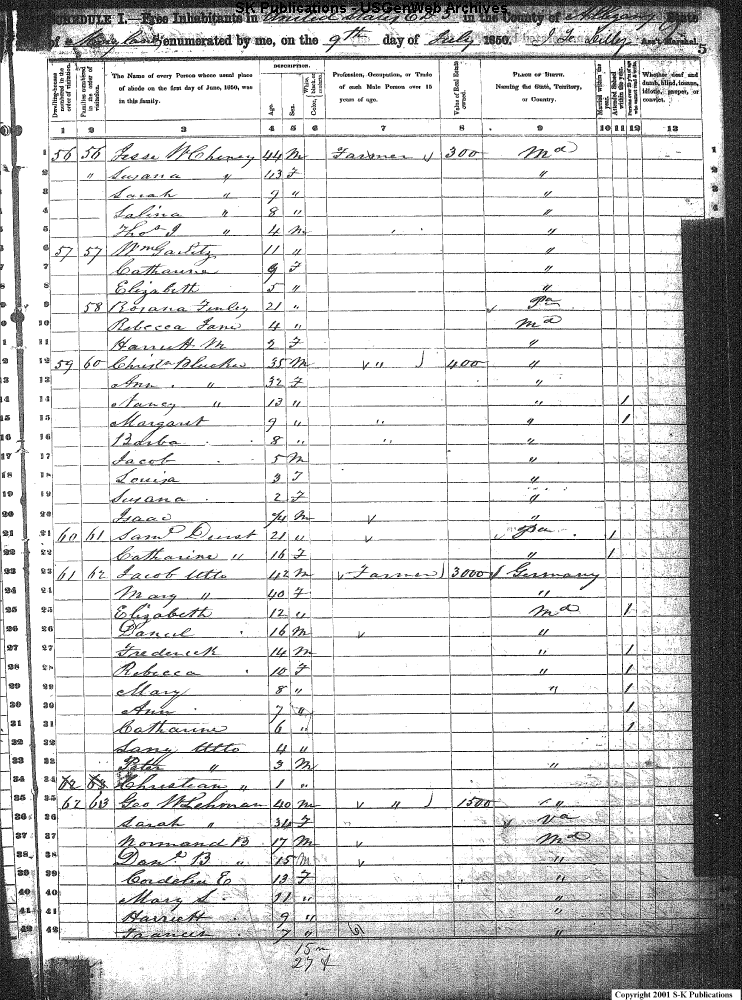 SK Publications - USGenWeb Archives
SCHEDULE I.—Free Inhabitants in United States E D 5 in the County of Allegany State
of Maryland enumerated by me, on the 9th day of July 1850. Ass't Marshal.
5
Dwelling-houses numbered in the order of visitation.
Families numbered in the order of visitation.
The Name of every Person whose usual place of abode on the first day of June, 1850, was in this family.
DESCRIPTION.
Age.
Sex.
Color, White, black or mulatto.
Profession, Occupation, or Trade of each Male Person over 15 years of age.
Value of Real Estate owned.
PLACE OF BIRTH. Naming the State, Territory, or Country.
Married within the year.
Attended School within the year.
Whether deaf and dumb, blind, insane, idiotic, pauper, or convict.
1 2 3 4 5 6 7 8 9 10 11 12 13
1 56 56 Jesse W Cheney 44 M Farmer 300 Md 1
2 " Susana " 43 F " 2
3 Sarah " 9 " " 3
4 Salina " 8 " " 4
5 Thos J " 4 M " 5
6 57 57 Wm Garlitz 11 " " 6
7 Catharine 9 F " 7
8 Elizabeth 5 " "
9 58 Rosana Finley 21 " Pa
10 Rebecca Jane 4 " Md
11 Harriett M 2 F "
12 59 60 Christn Blucker 35 M " 400 "
13 Ann " 32 F "
14 Nancy " 13 " " 1
15 Margaret 9 " " " 1
16 Barba 8 " " "
17 Jacob 5 M "
18 Louisa 3 F "
19 Susana 2 F "
20 Isaac M "
21 60 61 Saml Durst 21 " Pa 1
22 Catharine " 16 F " 1
23 61 62 Jacob Utto 42 M Farmer 3000 Germany
24 Mary " 40 F "
25 Elizabeth 12 " Md 1
26 Daniel 16 M "
27 Frederick 14 M " 1
28 Rebecca 10 F " 1
29 Mary 8 " " 1
30 Ann 7 " 1
31 Catharine 6 " 1
32 Sany Utto 4 "
33 Peter " 3 M "
34 62 63 Christian " 1 "
35 62 63 Geo W Lehman 40 M " 1500 "
36 Sarah " 34 F Va
37 Normand B 17 M Md
38 Danl B " 15 M "
39 Cordelia E 13 F "
40 Mary S. 11 " "
41 Harriett 9 " "
42 Frances 7 " "
15 m
27 f
Copyright 2001 S-K Publications